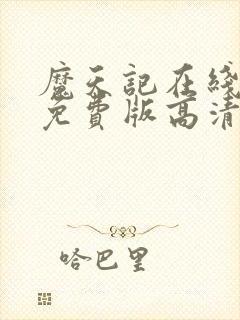 魔天記在綫
免費版高清
哈巴里